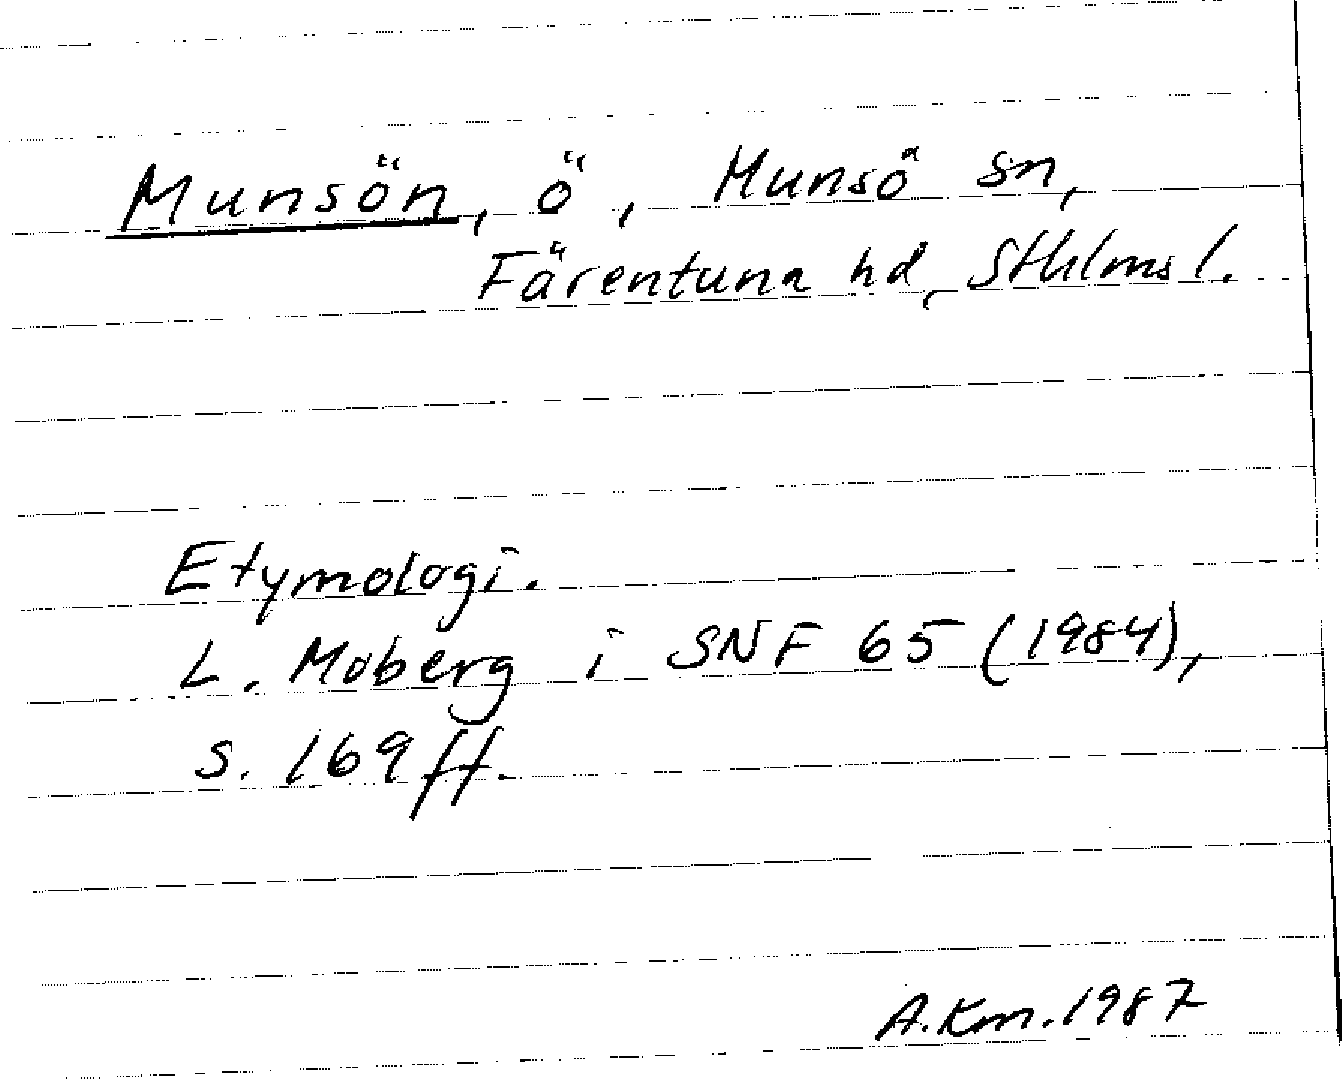 Munsön, ö, Munsö sn,
Färentuna hd, Sthlms l.
Etymologi.
L. Moberg i SNF 65 (1984),
s. 169 ff.
A.Km.1987